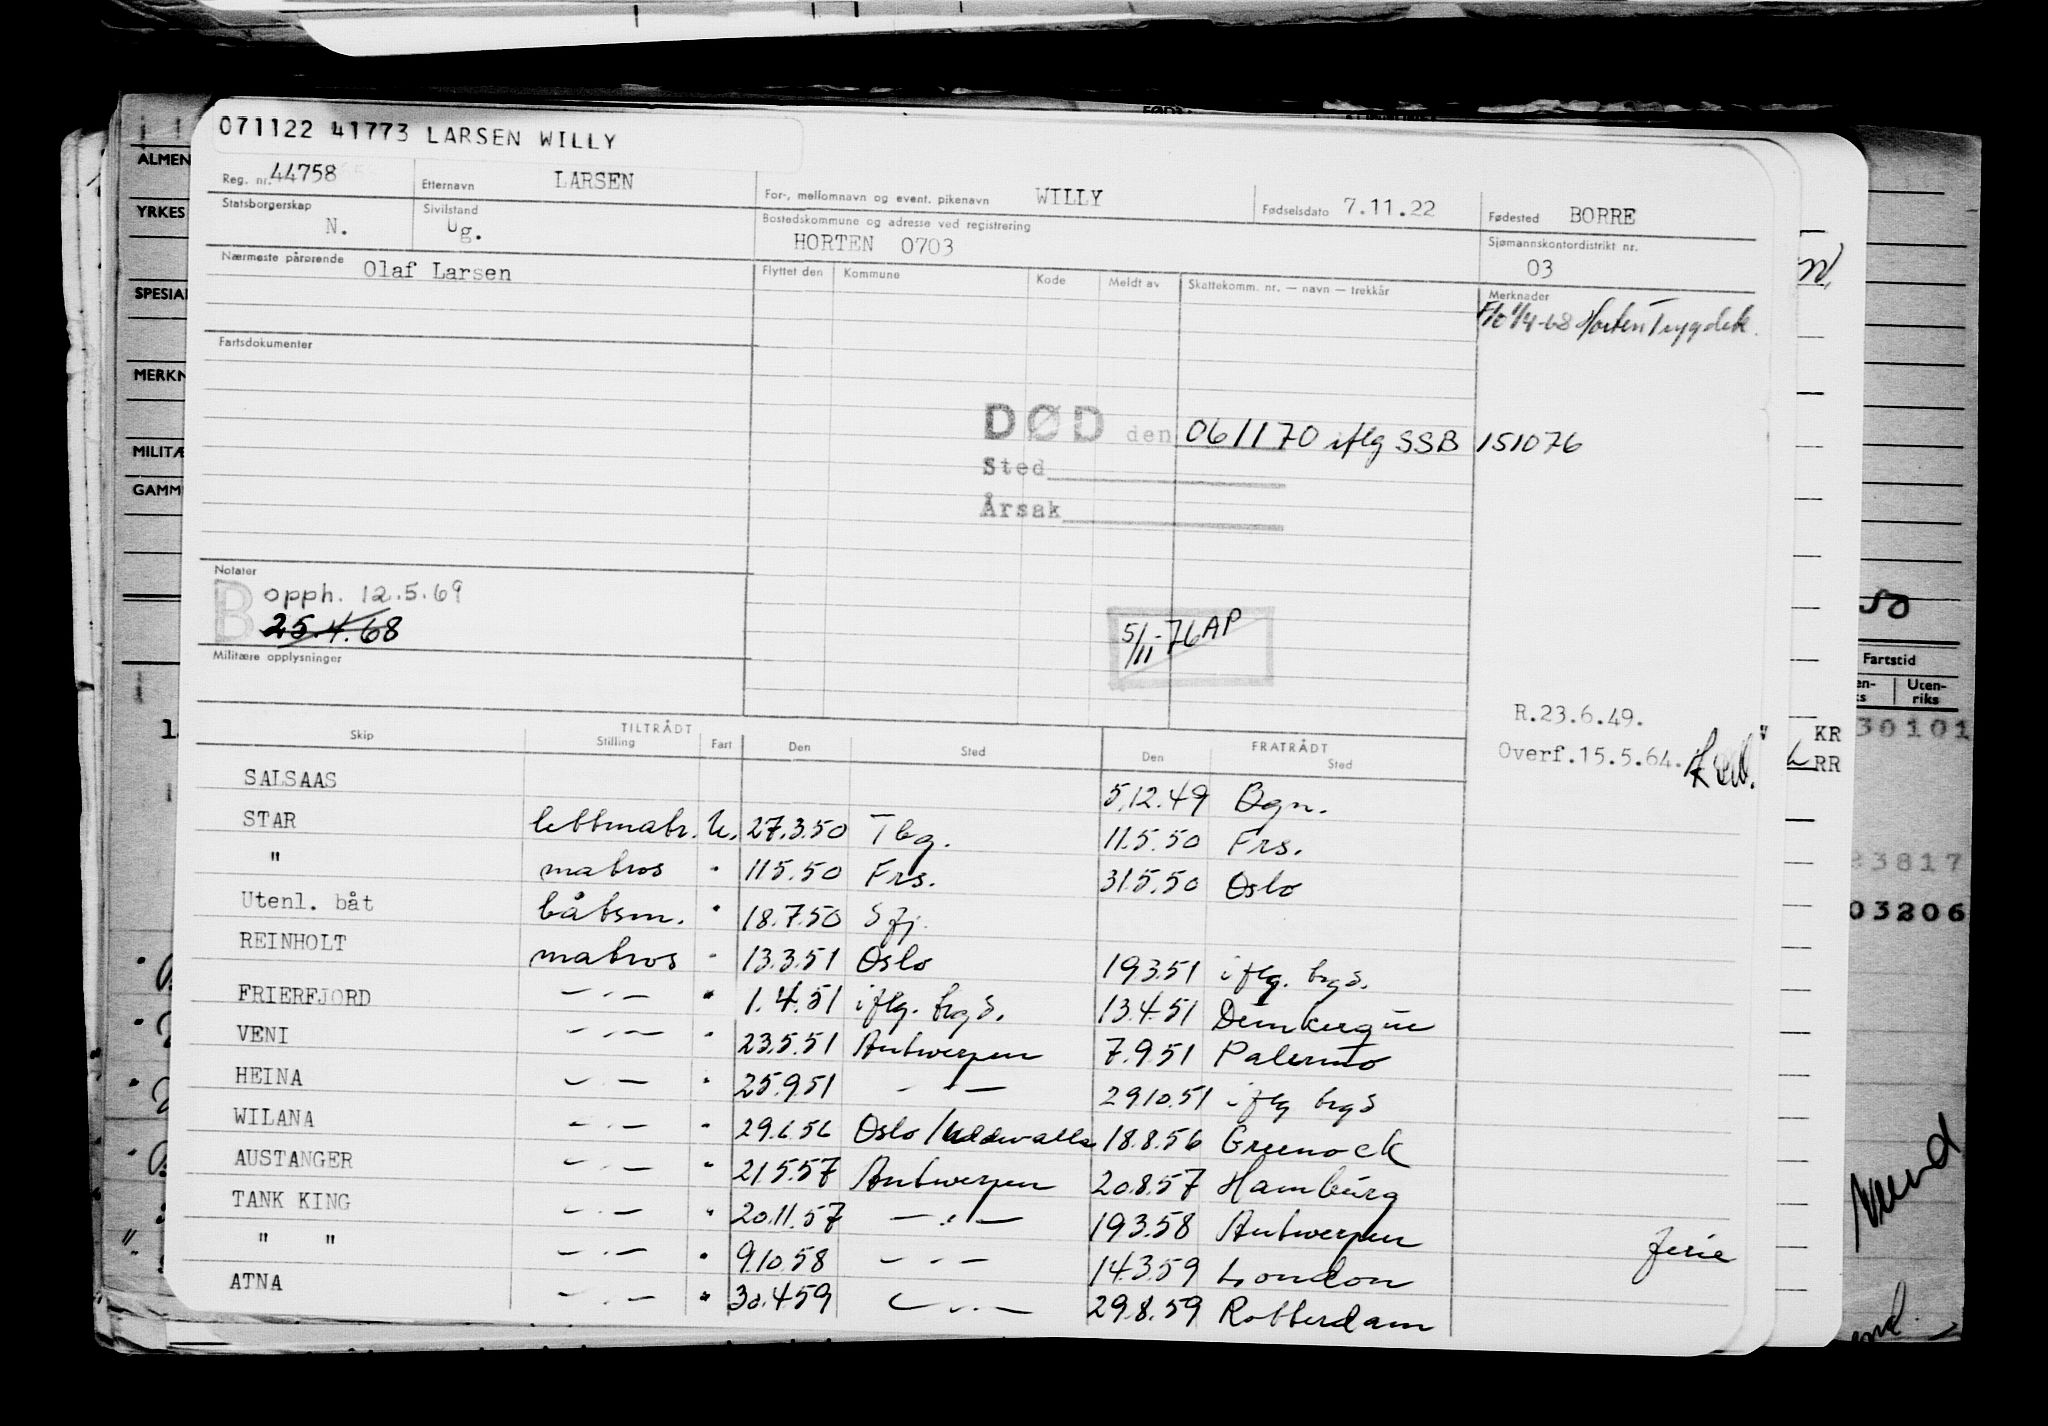 071122 41773 LARSEN WILLY
Reg. nr. 44758 Etternavn LARSEN For-, mellomnavn og event. pikenavn WILLY Fødselsdato 7.11.22 Fødested BORRE
Statsborgerskap N. Sivilstand Ug. Bostedskommune og adresse ved registrering HORTEN 0703 Sjømannskontordistrikt nr. 03
Nærmeste pårørende Olaf Larsen Flyttet den Kommune Kode Meldt av Skattekomm. nr. — navn — trekkår Merknader
1/4-68 Horten Trygdek.
Fartsdokumenter
DØD den 061170 iflg SSB 151076
Sted
Årsak
Notater
B opph. 12.5.69
25.4.68
5/11-76 AP
Militære opplysninger
R.23.6.49.
Overf.15.5.64.
Skip TILTRÅDT Stilling Fart Den Sted FRATRÅDT Den Sted
SALSAAS 5.12.49 Bgn.
STAR lettmatr. U. 27.3.50 Tbg. 11.5.50 Frs.
" matros " 11.5.50 Frs. 31.5.50 Oslo
Utenl. båt båtsm. " 18.7.50 Sfj.
REINHOLT matros " 13.3.51 Oslo 19.3.51 iflg. hgs.
FRIERFJORD — " — " 1.4.51 iflg. hgs. 13.4.51 Dunkerque
VENI — " — " 23.5.51 Antwerpen 7.9.51 Palermo
HEINA — " — " 25.9.51 — " — 29.10.51 iflg hgs
WILANA — " — " 29.6.56 Oslo/Uddevalla 18.8.56 Greenock
AUSTANGER — " — " 21.5.57 Antwerpen 20.8.57 Hamburg
TANK KING — " — " 20.11.57 — " — 19.3.58 Antwerpen ferie
" " — " — " 9.10.58 — " — 14.3.59 London
ATNA — " — " 30.4.59 — " — 29.8.59 Rotterdam
ALMEN
YRKES
SPESIAL
MERKN
MILITÆ
GAMM
50
Fartstid
Uten-
riks
KR 30101
RR
23817
03206